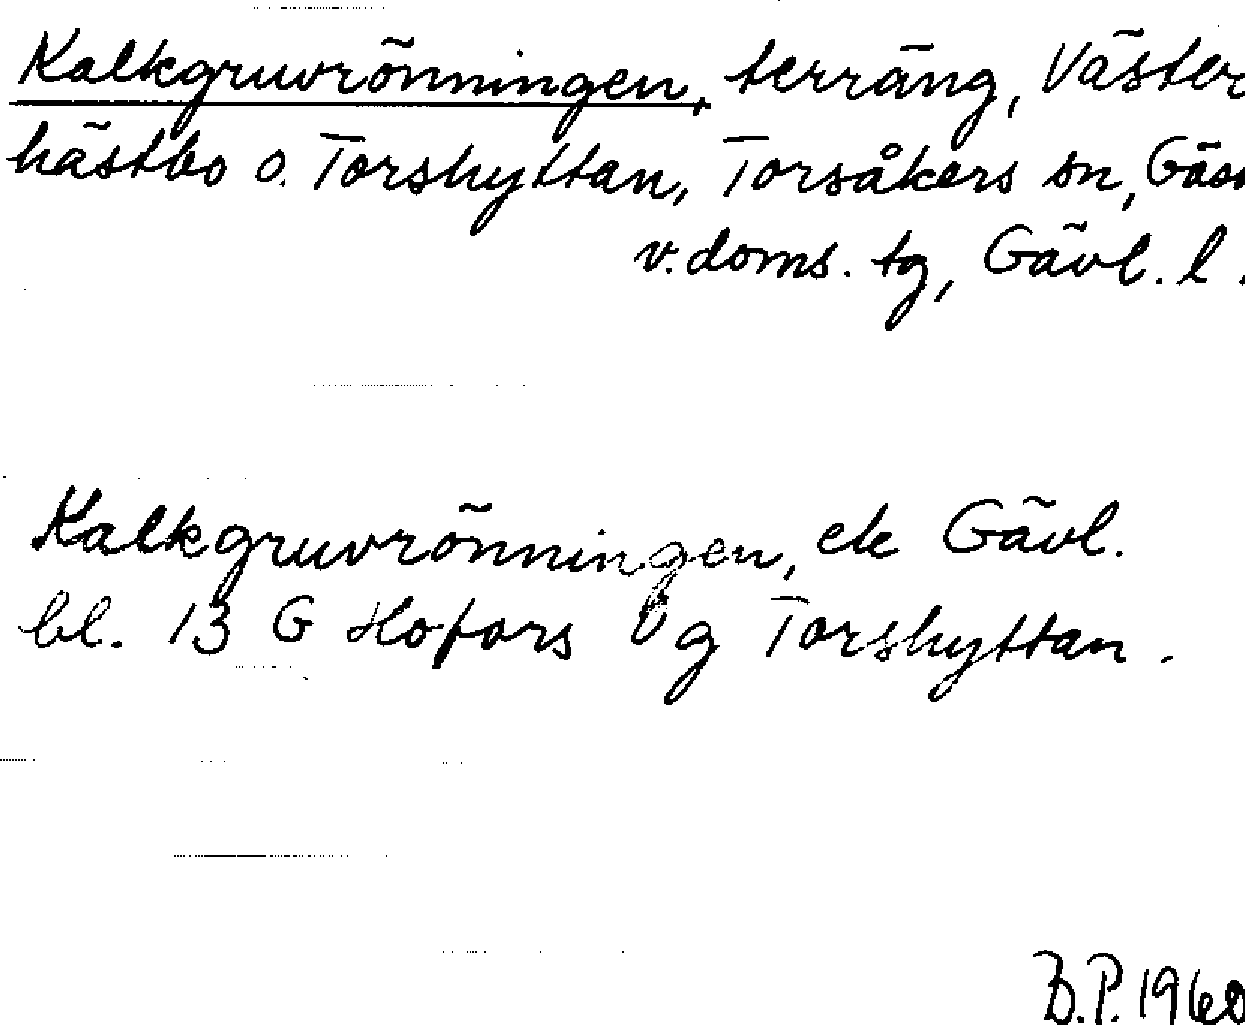 Kalkgruvrönningen, terräng, Väster
hästbo o. Torshyttan, Torsåkers sn, Gäst
v. doms. tg, Gävl. l.
Kalkgruvrönningen, ek Gävl.
bl. 13 G Hofors v g Torshyttan.
B.P. 1960